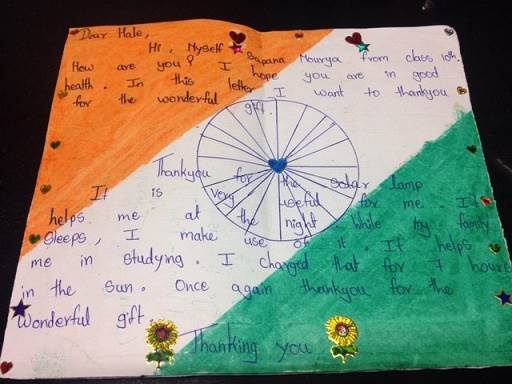 Dear Hale,
Hi, Myself Sapana Mourya from class 10th.
How are you? I hope you are in good
health. In this letter I want to thankyou
for the wonderful gift.
Thankyou for the solar lamp
It is very useful for me. It
helps me at the night. While my family
sleeps, I make use of it. It helps
me in studying. I charged that for 7 hours
in the sun. Once again thankyou for the
wonderful gift.
Thanking you